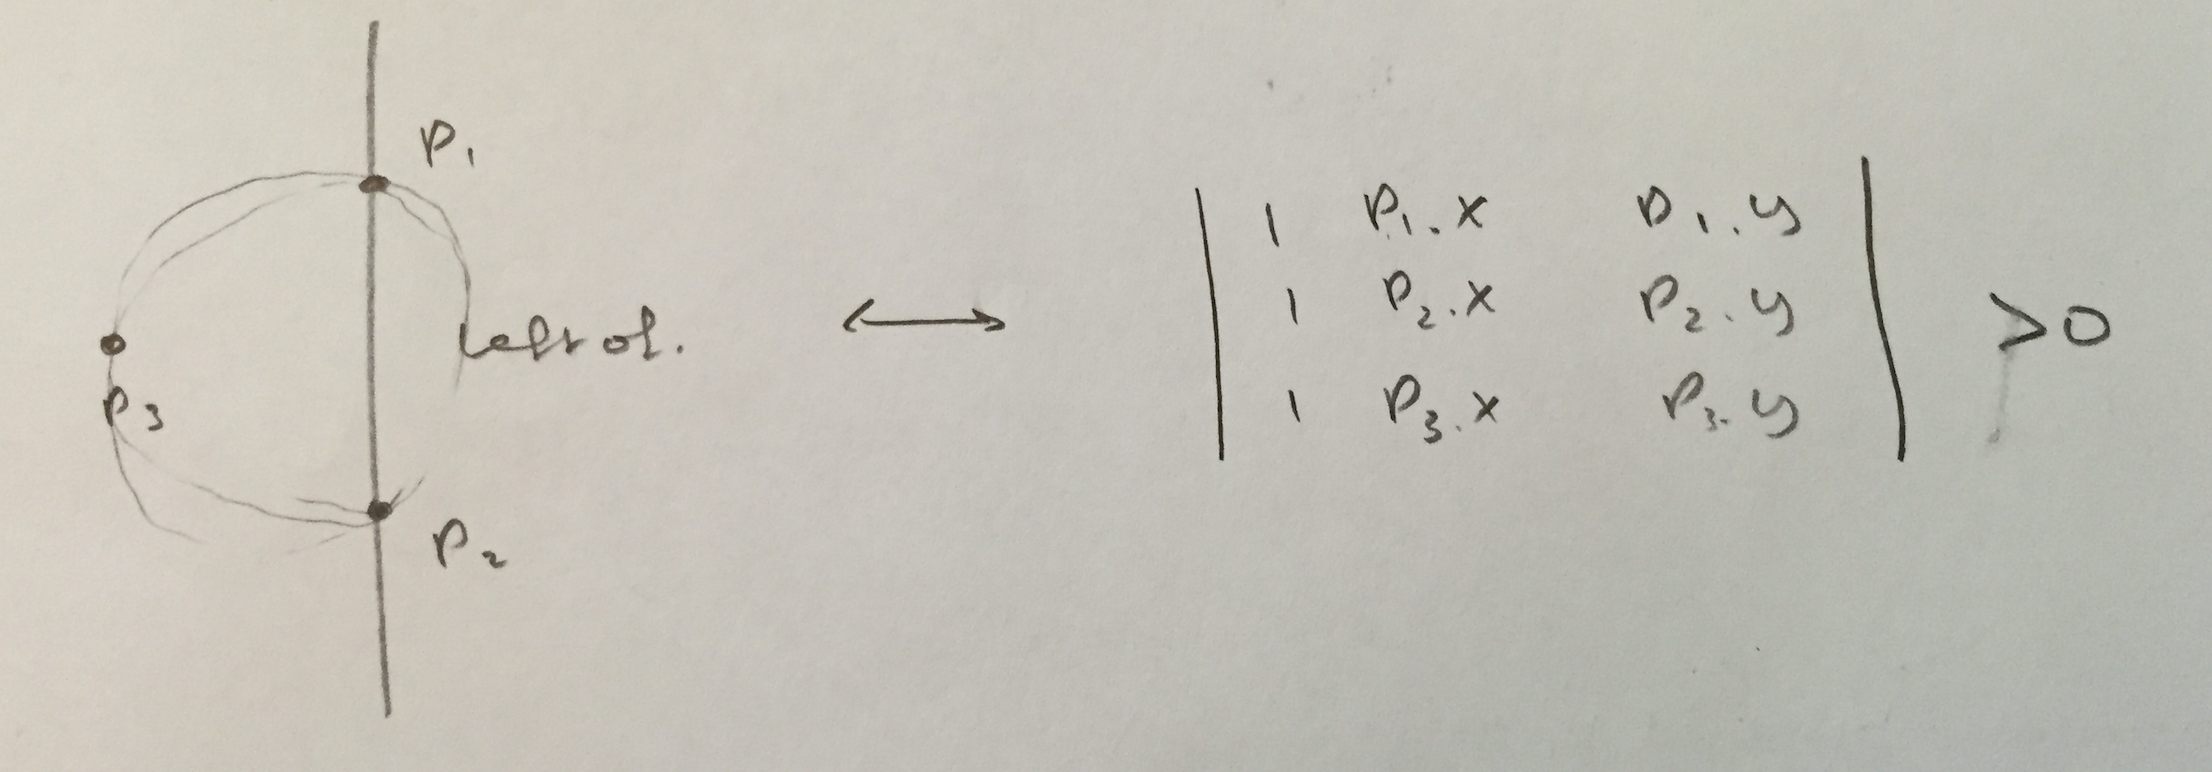 P₁
left of.
P₃
P₂
↔
| 1 P₁.x P₁.y |
| 1 P₂.x P₂.y | >0
| 1 P₃.x P₃.y |